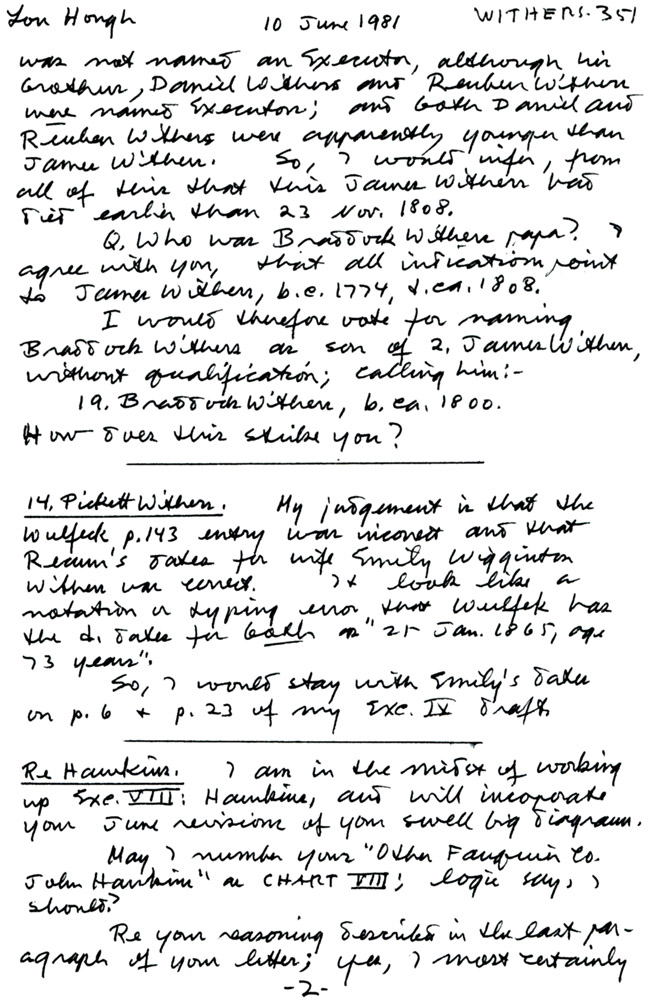 Lon Hough 10 June 1981 WITHERS-351
was not named an Executor, although his
brothers, Daniel Withers and Reuben Withers
were named Executors; and both Daniel and
Reuben Withers were apparently younger than
James Withers. So, I would infer, from
all of this that this James Withers had
died earlier than 23 Nov. 1808.
Q. Who was Braddock Withers papa? I
agree with you, that all indications point
to James Withers, b.c. 1774, d.ca. 1808.
I would therefore vote for naming
Braddock Withers as son of 2. James Withers,
without qualification; calling him:-
19. Braddock Withers, b. ca. 1800.
How does this strike you?
14. Pickett Withers. My judgement is that the
Wulfeck p.143 entry was incorrect and that
Recum's dates for wife Emily Wigginton
Withers was correct. It look like a
notation or typing error that Wulfeck has
the d. dates for both as "25 Jan. 1865, age
73 years".
So, I would stay with Emily's dates
on p. 6 & p. 23 of my Exc. IV draft.
Re Hawkins. I am in the midst of working
up Exc. VIII: Hawkins, and will incorporate
your June revisions of your swell big diagram.
May I number your "Other Fauquier Co.
John Hawkins" as CHART VIII; logic says I
should?
Re your reasoning described in the last par-
agraph of your letter; yes, I most certainly
-2-